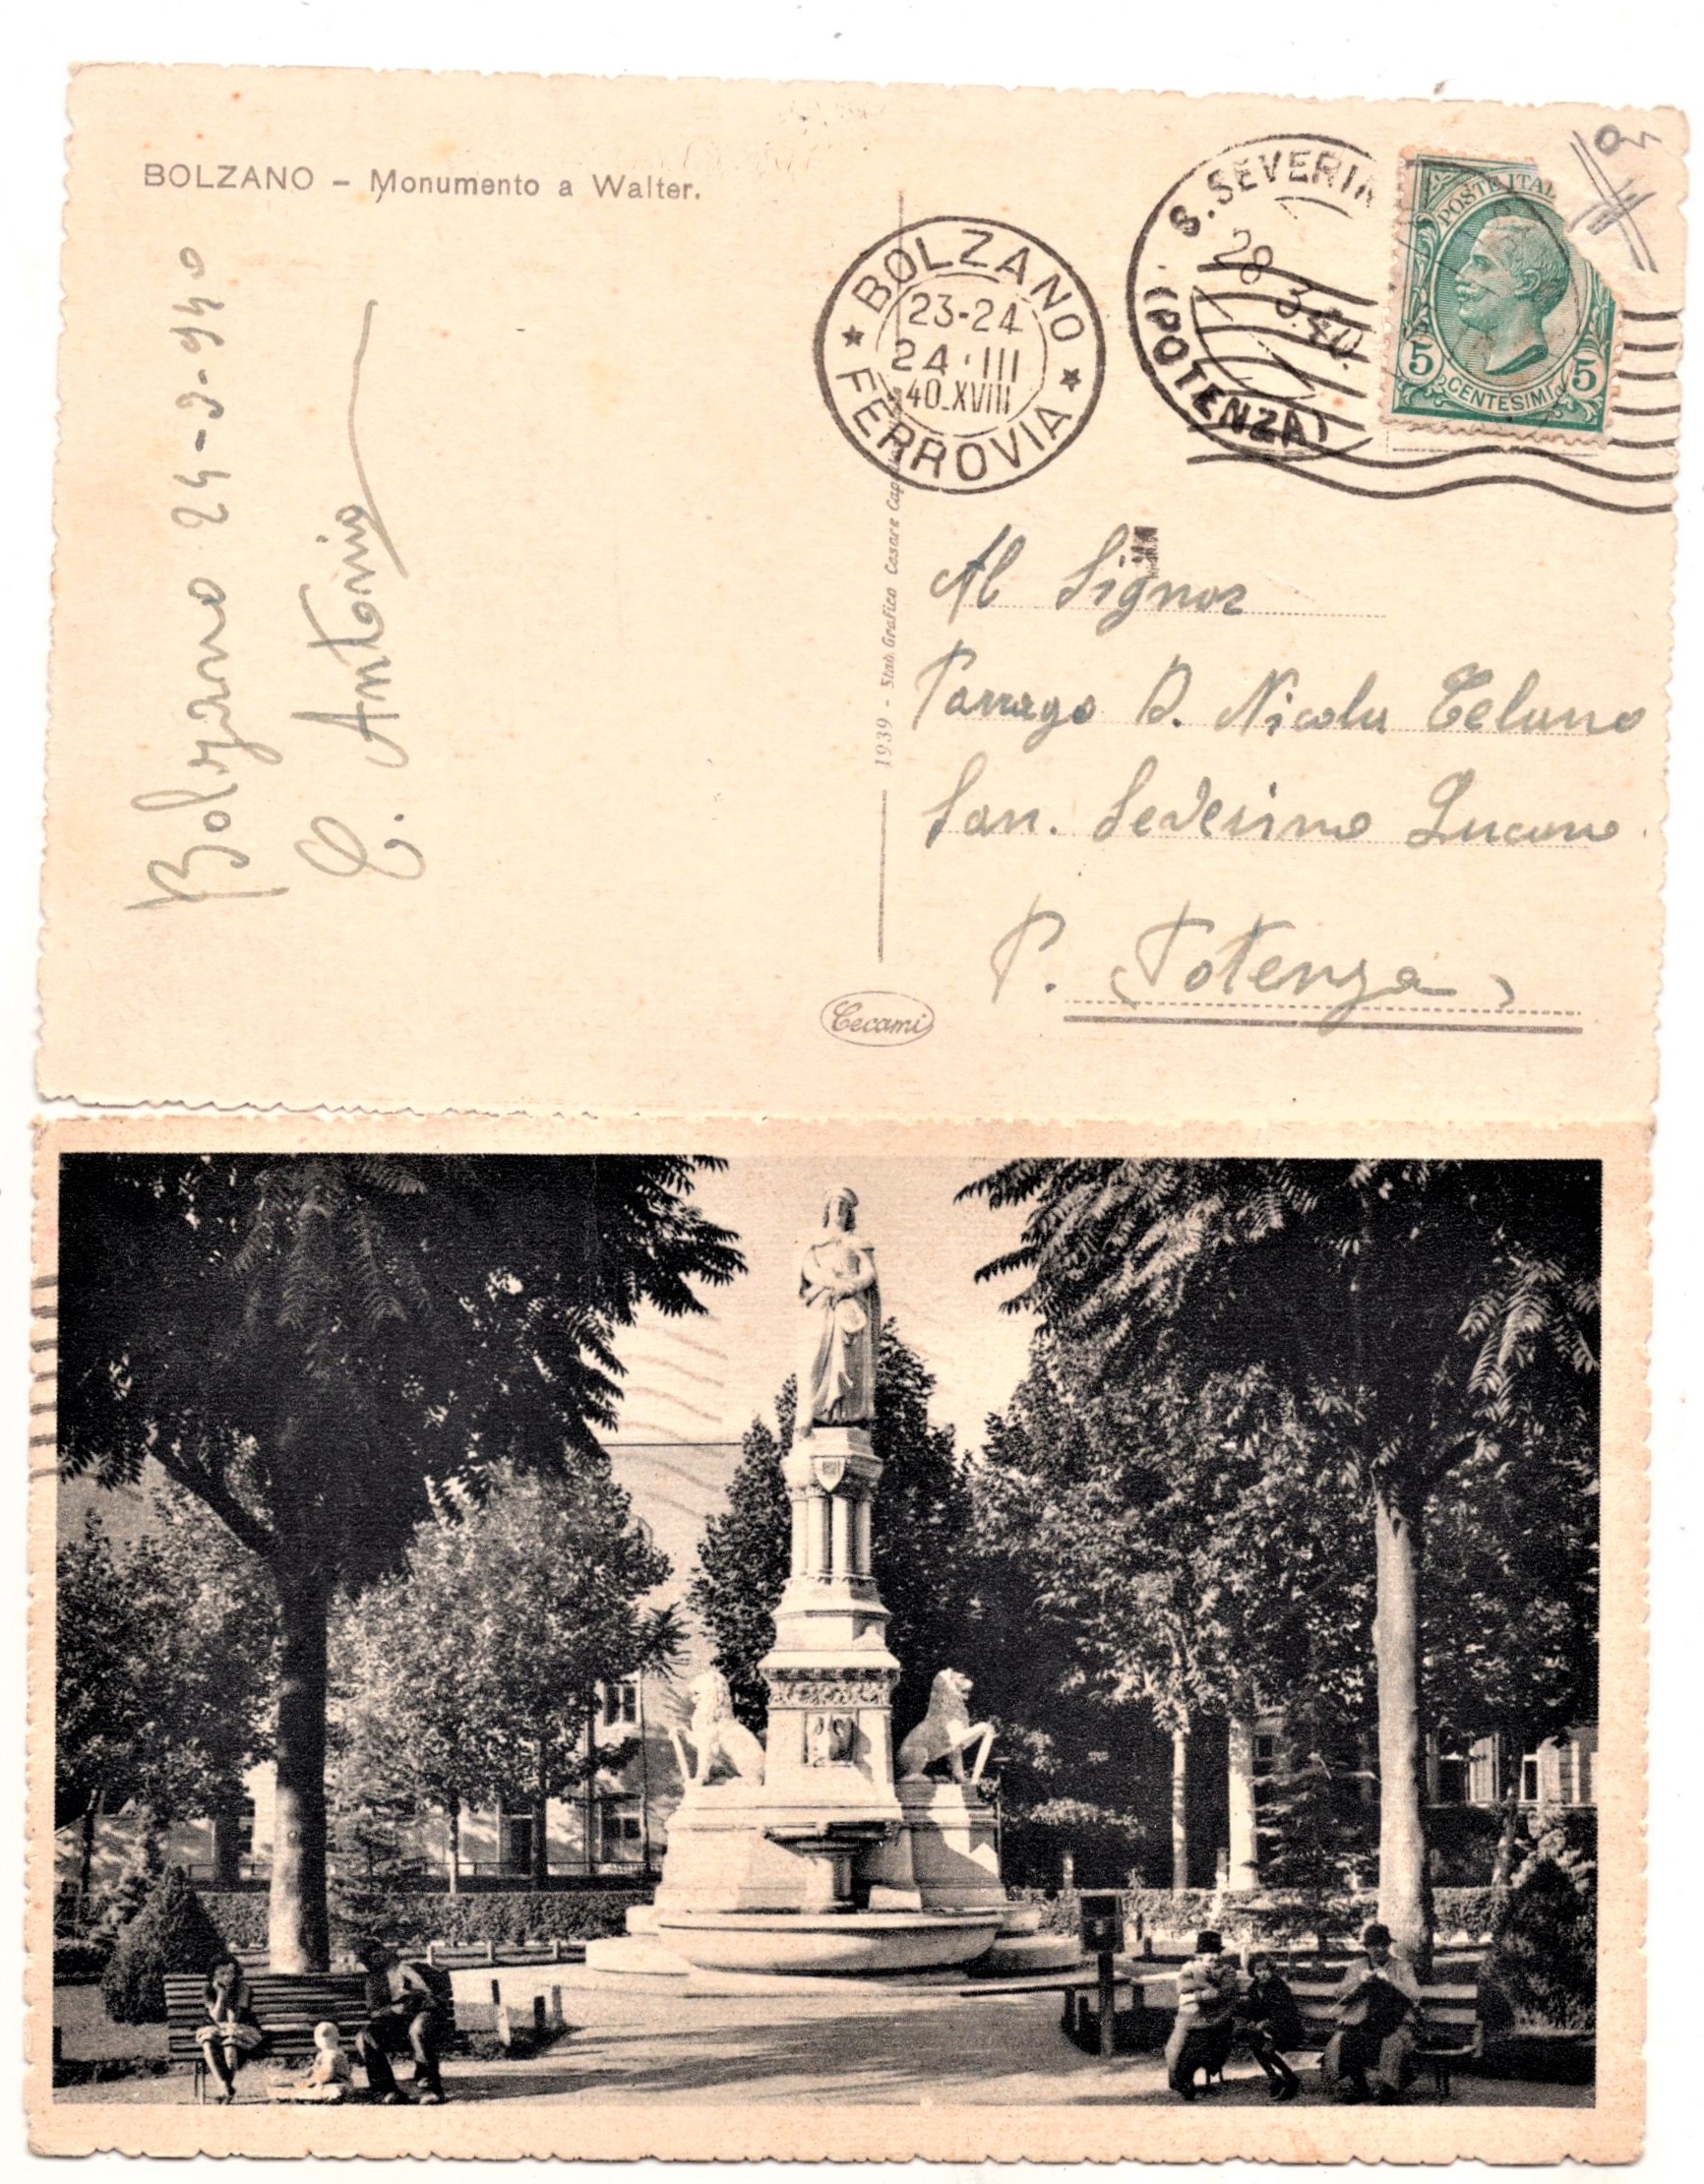 BOLZANO – Monumento a Walter.
Bolzano 24-3-940
C. Antonio
BOLZANO
23-24
24·III
40.XVIII
FERROVIA
S. SEVERI
28 3.40.
(POTENZA)
POSTE ITAL
5 CENTESIMI 5
1939 - Stab. Grafico Cesare Cap
Cecami
Al Signor
Parrago D. Nicola Celano
San. Severino Lucano.
P. Potenza